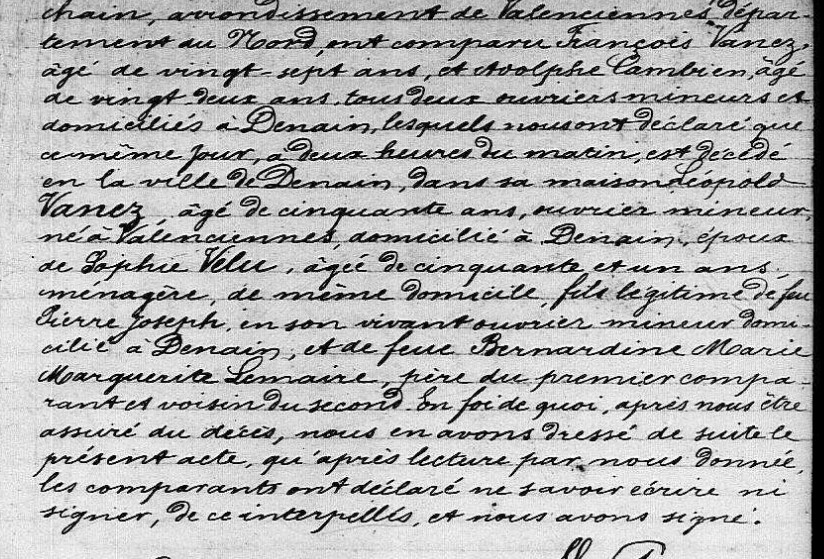 chain, arrondissement de Valenciennes, dépar-
tement du Nord, ont comparu François Vanez,
âgé de vingt-sept ans, et Adolphe Cambien, âgé
de vingt-deux ans, tous deux ouvriers mineurs et
domiciliés à Denain, lesquels nous ont déclaré que
ce même jour, à deux heures du matin, est décédé
en la ville de Denain, dans sa maison Léopold
Vanez, âgé de cinquante ans, ouvrier mineur,
né à Valenciennes, domicilié à Denain, époux
de Sophie Velu, âgée de cinquante et un ans,
ménagère, de même domicile, fils légitime de feu
Pierre Joseph, en son vivant ouvrier mineur domi-
cilié à Denain, et de feue Bernardine Marie
Marguerite Lemaire, père du premier compa-
rant et voisin du second. En foi de quoi, après nous être
assuré du décès, nous en avons dressé de suite le
présent acte, qu'après lecture par nous donnée,
les comparants ont déclaré ne savoir écrire ni
signer, de ce interpellés, et nous avons signé.